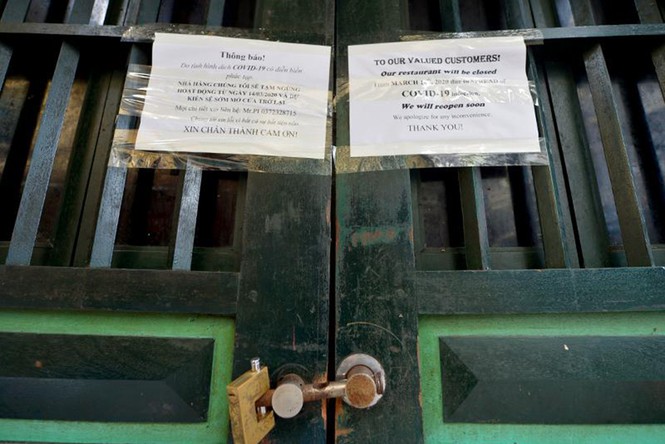 Thông báo!
Do tình hình dịch COVID-19 có diễn biến
phức tạp.
NHÀ HÀNG CHÚNG TÔI SẼ TẠM NGƯNG
HOẠT ĐỘNG TỪ NGÀY 14/03/2020 VÀ DỰ
KIẾN SẼ SỚM MỞ CỬA TRỞ LẠI
Mọi chi tiết xin liên hệ: Mr.PI 0372328715
Chúng tôi xin lỗi vì bất cứ sự bất tiện nào
XIN CHÂN THÀNH CẢM ƠN!
TO OUR VALUED CUSTOMERS!
Our restaurant will be closed
From MARCH 2020 due to SPREAD of
COVID-19
We will reopen soon
We apologize for any inconvenience
THANK YOU!